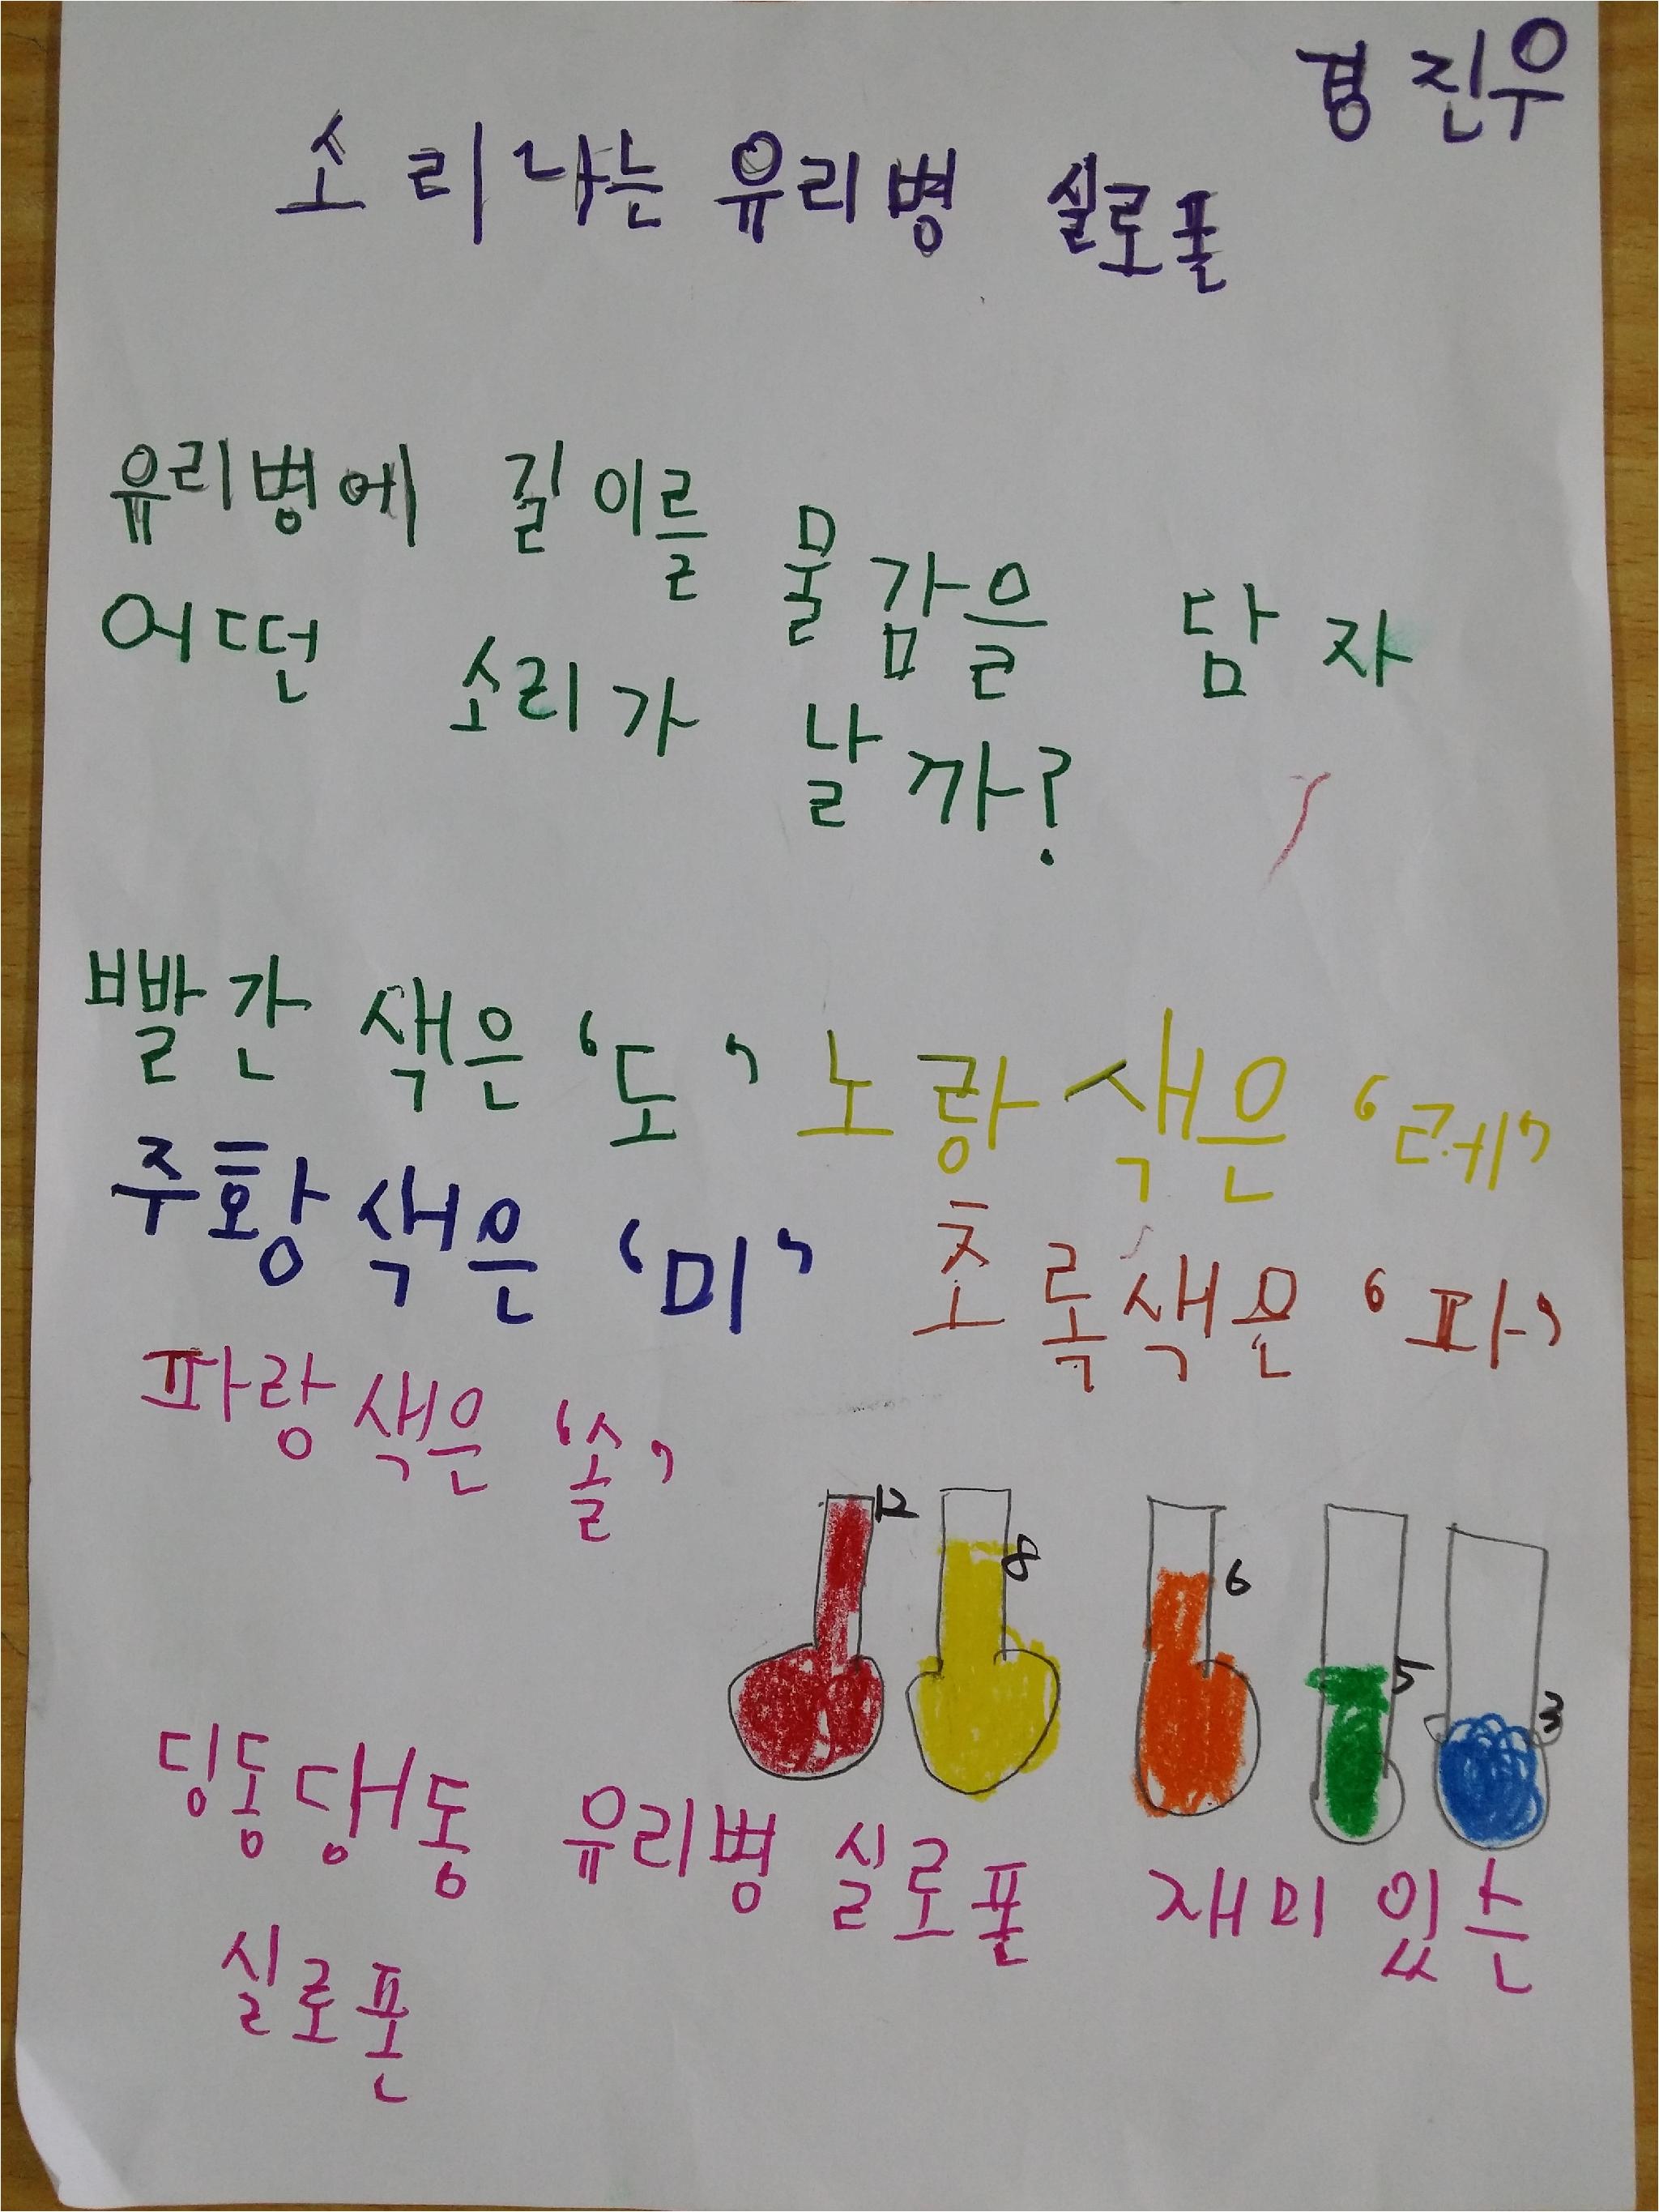 경진우
소리나는 유리병 실로폰
유리병에 길이를 물감을 담자
어떤 소리가 날까?
빨간 색은 '도' 노랑색은 '레'
주황색은 '미' 초록색은 '파'
파랑색은 '솔'
12 8 6 5 3
딩동댕동 유리병 실로폰 재미있는
실로폰